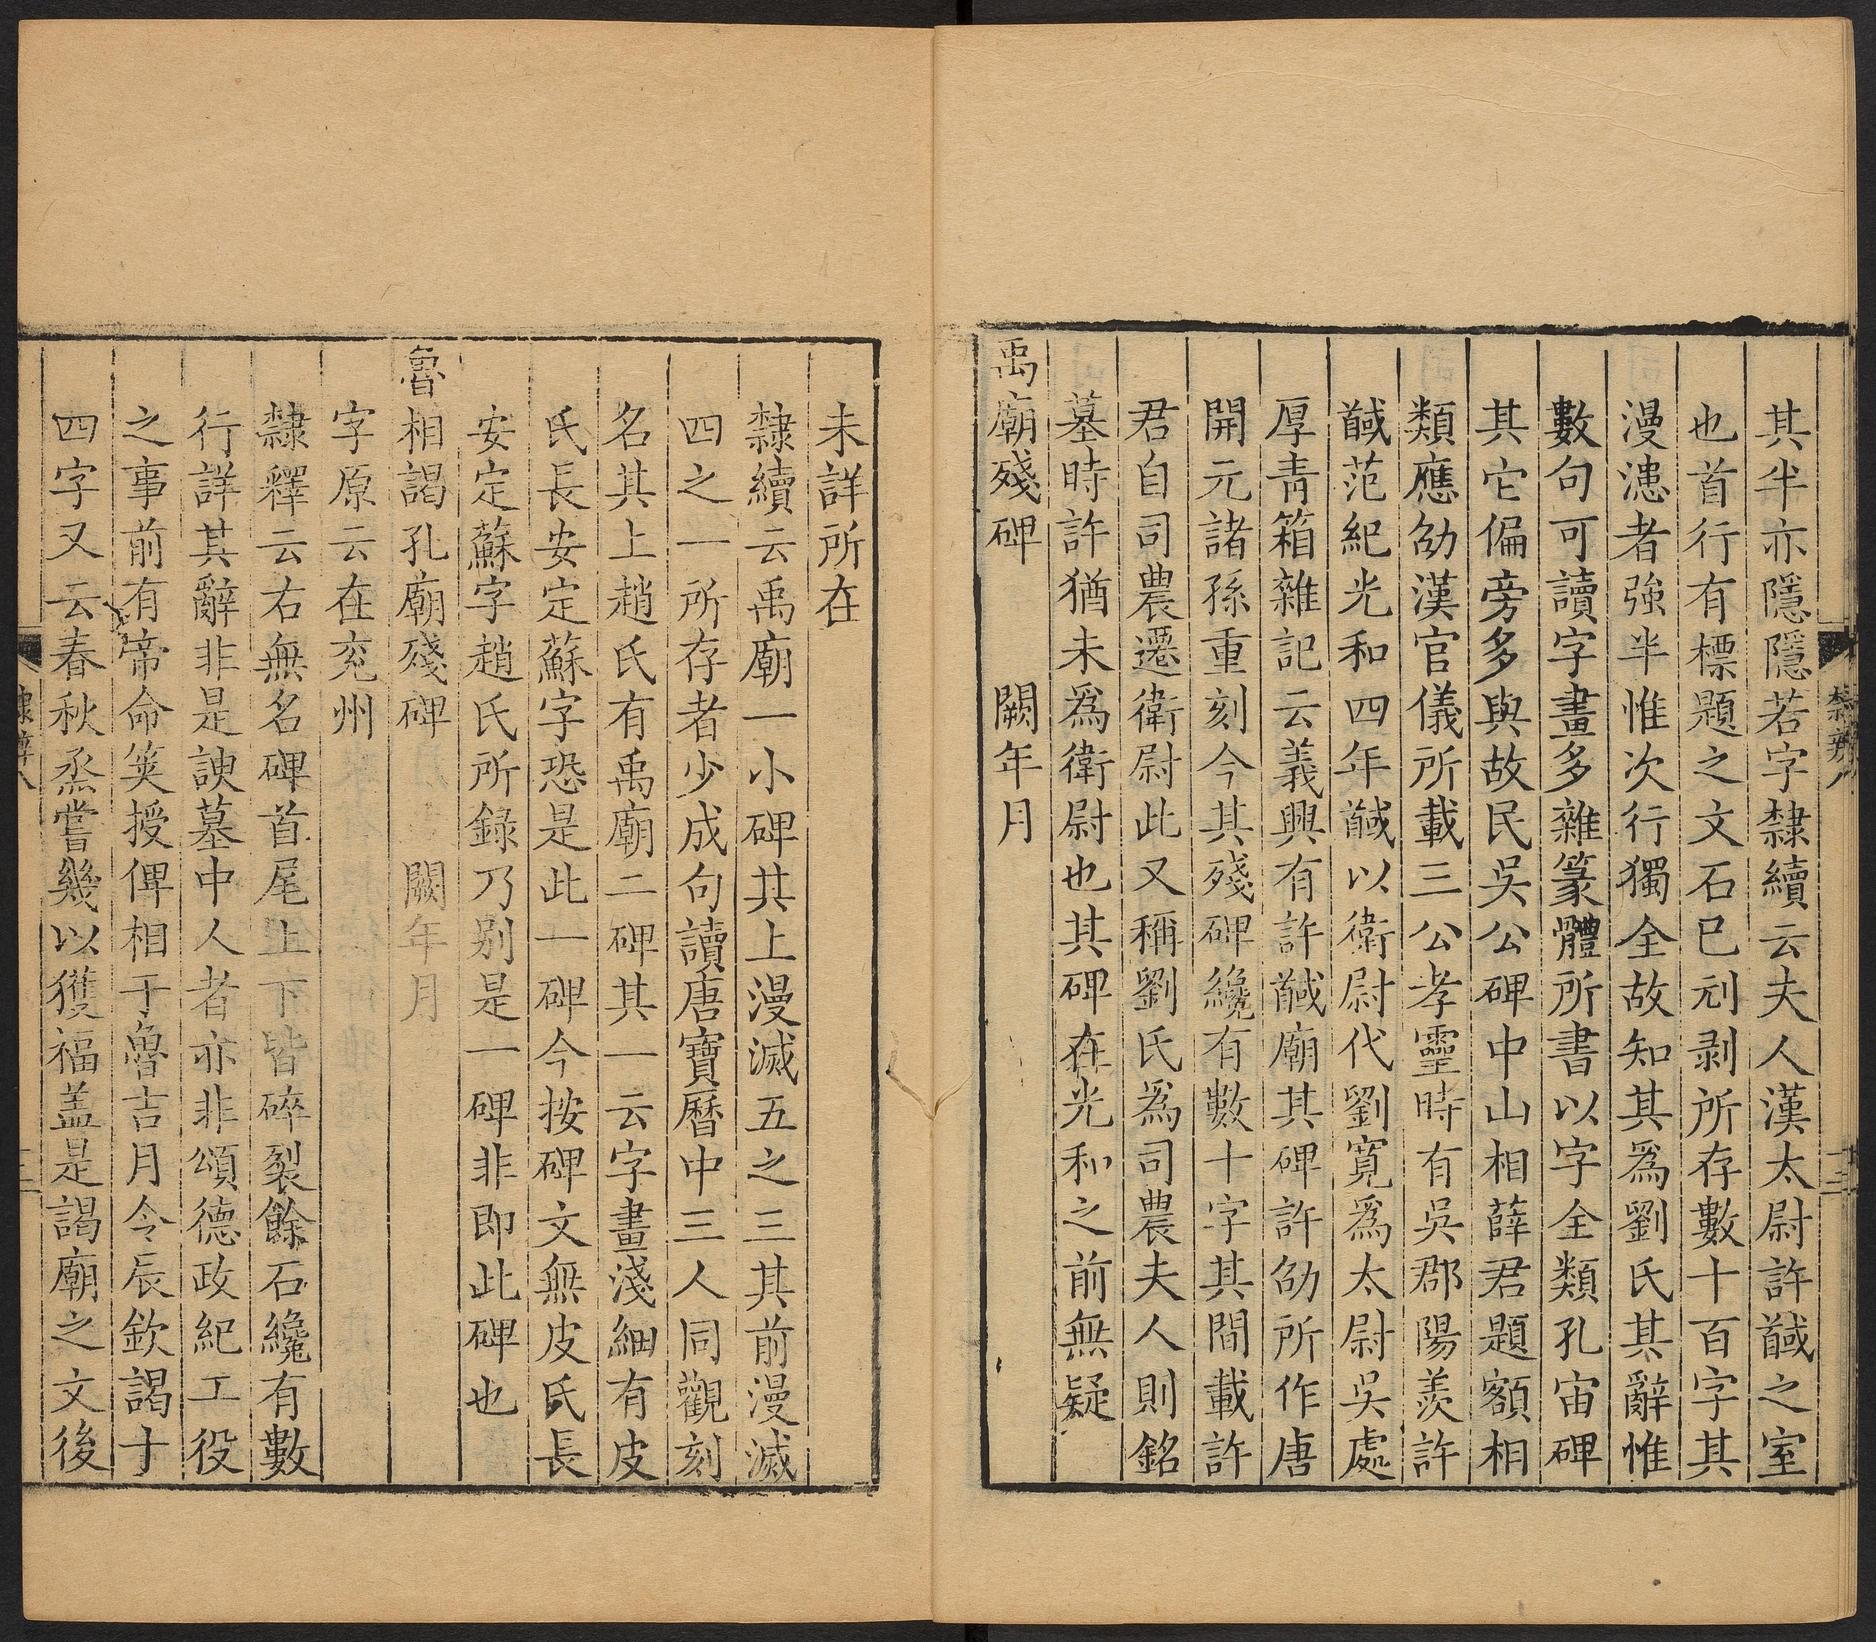 其半亦隱隱若字隸續云夫人漢太尉許馘之室
也首行有標題之文石已刓剥所存數十百字其
漫漶者強半惟次行獨全故知其爲劉氏其辭惟
數句可讀字畫多雜篆體所書以字全類孔宙碑
其它偏旁多與故民吳公碑中山相薛君題額相
類應劭漢官儀所載三公孝靈時有吳郡陽羡許
馘范紀光和四年馘以衛尉代劉寬爲太尉吳處
厚青箱雜記云義興有許馘廟其碑許劭所作唐
開元諸孫重刻今其殘碑纔有數十字其間載許
君自司農遷衛尉此又稱劉氏爲司農夫人則銘
墓時許猶未爲衛尉也其碑在光和之前無疑
禹廟殘碑 闕年月
未詳所在
隸續云禹廟一小碑其上漫滅五之三其前漫滅
四之一所存者少成句讀唐寶曆中三人同觀刻
名其上趙氏有禹廟二碑其一云字畫淺細有皮
氏長安定蘇字恐是此一碑今按碑文無皮氏長
安定蘇字趙氏所錄乃别是一碑非即此碑也
魯相謁孔廟殘碑 闕年月
字原云在兖州
隸釋云右無名碑首尾上下皆碎裂餘石纔有數
行詳其辭非是諛墓中人者亦非頌德政紀工役
之事前有帝命筴授俾相于魯吉月令辰欽謁十
四字又云春秋烝嘗幾以獲福盖是謁廟之文後